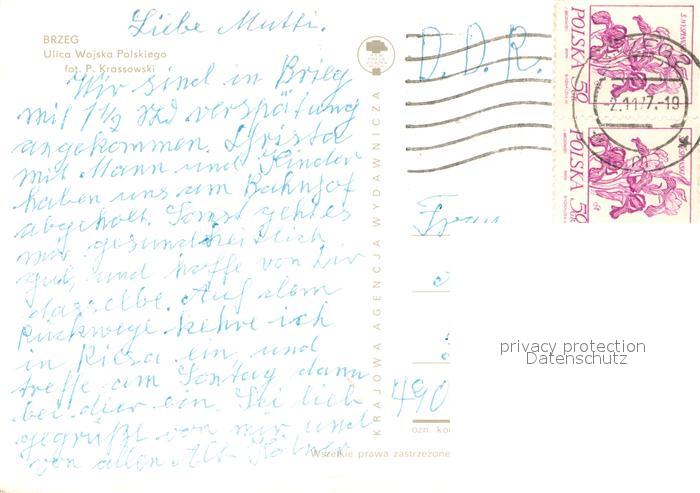 BRZEG
Ulica Wojska Polskiego
fot. P. Krassowski
Liebe Mutti.
Wir sind in Brieg
mit 1 1/2 Std verspätung
angekommen. Christa
mit Mann und Kinder
haben uns am Bahnhof
abgeholt. Sonst geht es
mir gesundheitlich
gut, und hoffe von Dir
dasselbe. Auf dem
Rückwege kehre ich
in Riesa ein, und
treffe am Sontag dann
bei dier ein. Sei lieb
gegrüßt von mir und
von allen
KRAJOWA AGENCJA WYDAWNICZA
D.D.R.
POLSKA 50
POLSKA 50
BRZEG
-2.11.77-19
Frau
490
ozn. ko
Wszelkie prawa zastrzeżone
privacy protection
Datenschutz